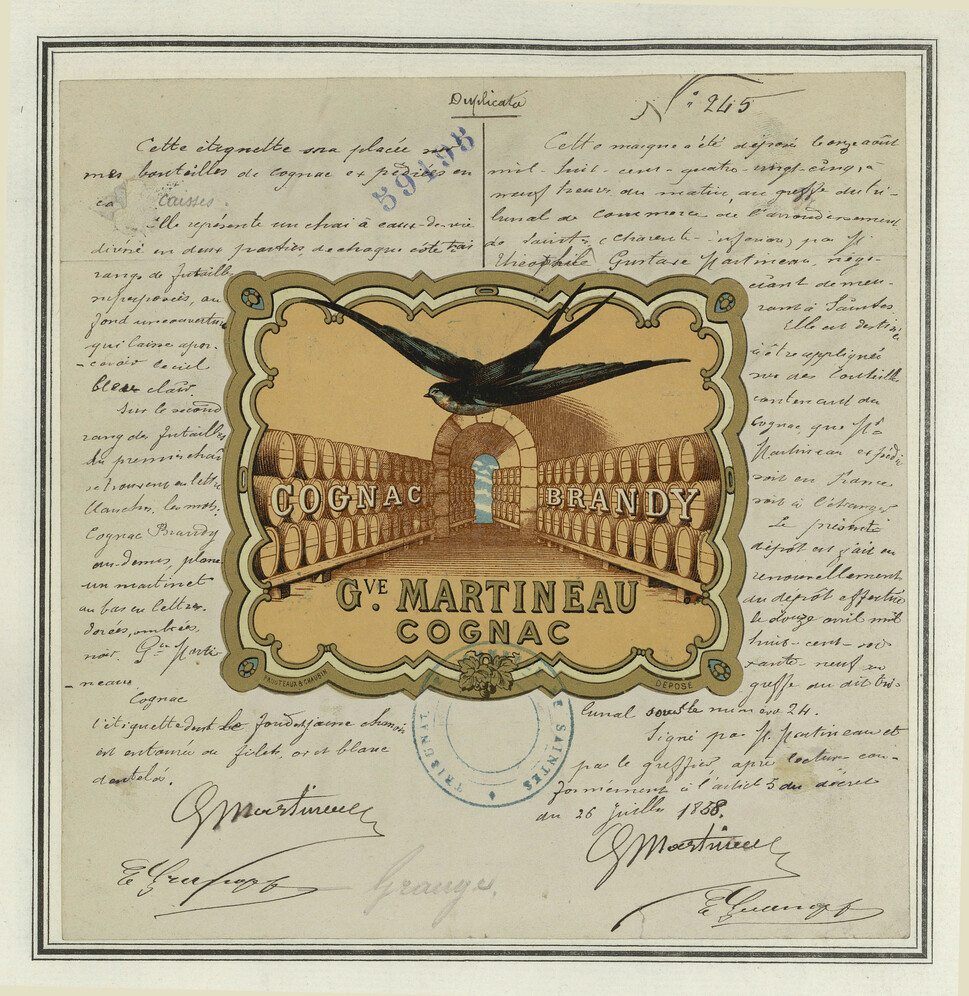 Duplicata
N° 245
59498
Cette étiquette sera placée sur
mes bouteilles de cognac expédiées en
caisses.
Elle représente un chai à eaux-de-vie
divisé en deux parties, de chaque côté trois
rangs de futailles
superposées, au
fond une ouverture
qui laisse aper-
-cevoir le ciel
bleu clair.
Sur le second
rang des futailles
du premier chai
se trouvent en lettres
blanches, les mots
Cognac Brandy
au-dessus plane
un martinet
au bas en lettres
dorées, ombrées
noir. Gve Marti-
-neau
Cognac
L'étiquette dont le fond est jaune chamois
est entourée de filets or et blanc
dentelé.
GMartineau
Cette marque a été déposée le onze août
mil-huit-cent-quatre-vingt-cinq, à
neuf heures du matin, au greffe du tri-
bunal de commerce de l'arrondissement
de Saintes (Charente-inférieure) par M.
Théophile Gustave Martineau, négo-
ciant demeu-
rant à Saintes
Elle est destinée
à être appliquée
sur des bouteilles
contenant du
cognac que Mr
Martineau expédie
soit en France
soit à l'étranger
Le présent
dépôt est fait en
renouvellement
du dépôt effectué
le douze avril mil
huit-cent-soi-
xante-neuf au
greffe du dit tri-
bunal sous le numéro 24.
Signé par M. Martineau et
par le greffier après lecture con-
formément à l'article 5 du décret
du 26 Juillet 1858.
GMartineau
Grange.
COGNAC BRANDY
GVE. MARTINEAU
COGNAC
DÉPOSÉ
TRIBUNAL
SAINTES